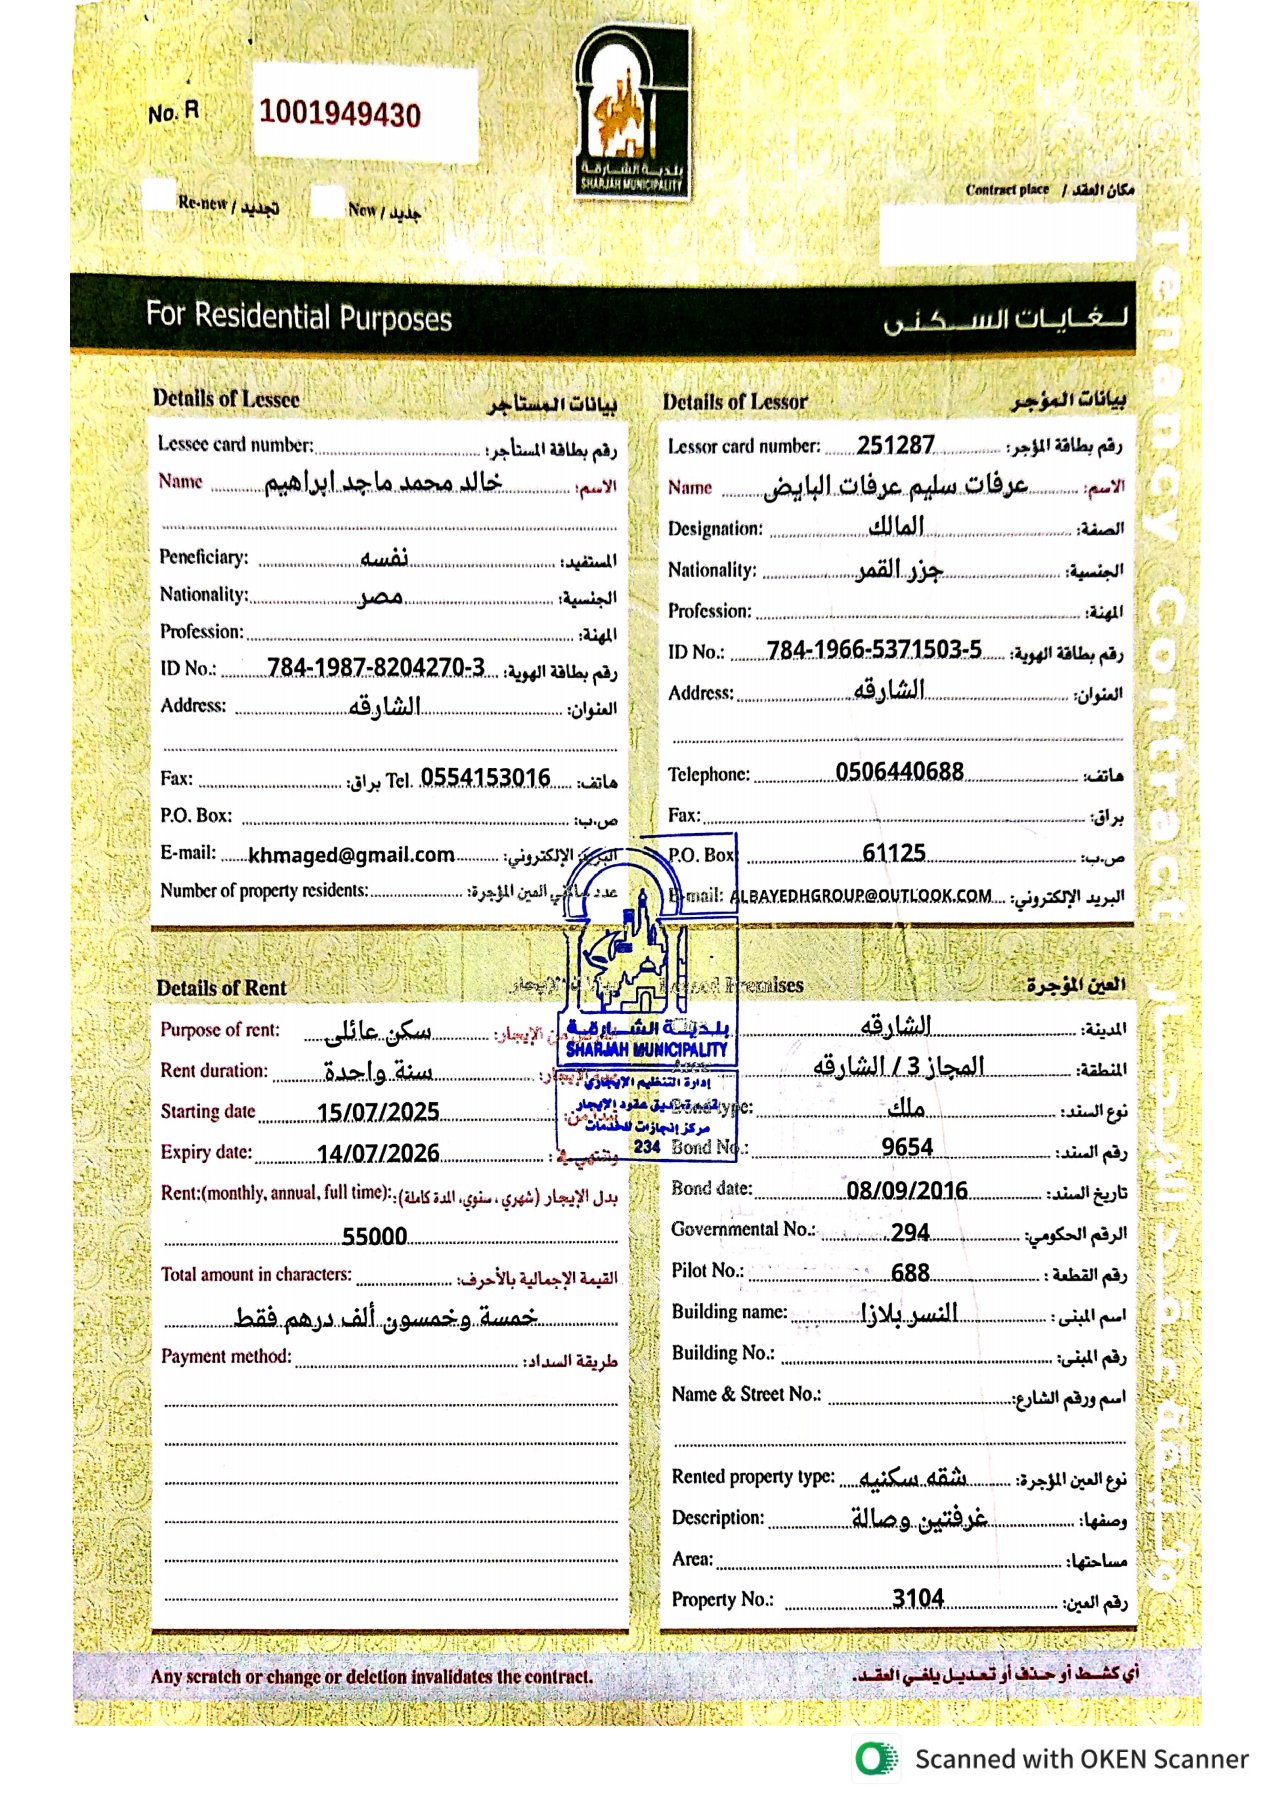 No. R 1001949430
بلدية الشارقة
SHARJAH MUNICIPALITY
Re-new / تجديد
New / جديد
Contract place / مكان العقد
For Residential Purposes
لغايات السكنى
Tenancy Contract
Details of Lessee بيانات المستاجر
Lessee card number: رقم بطاقة المستأجر:
Name خالد محمد ماجد ابراهيم الاسم:
Peneficiary: نفسه المستفيد:
Nationality: مصر الجنسية:
Profession: المهنة:
ID No.: 784-1987-8204270-3 رقم بطاقة الهوية:
Address: الشارقه العنوان:
Fax: براق: Tel. 0554153016 هاتف:
P.O. Box: ص.ب:
E-mail: khmaged@gmail.com البريد الإلكتروني:
Number of property residents: عدد ساكني العين المؤجرة:
Details of Lessor بيانات المؤجر
Lessor card number: 251287 رقم بطاقة المؤجر:
Name عرفات سليم عرفات البايض الاسم:
Designation: المالك الصفة:
Nationality: جزر القمر الجنسية:
Profession: المهنة:
ID No.: 784-1966-5371503-5 رقم بطاقة الهوية:
Address: الشارقه العنوان:
Telephone: 0506440688 هاتف:
Fax: براق:
P.O. Box 61125 ص.ب:
E-mail: ALBAYEDHGROUP@OUTLOOK.COM البريد الإلكتروني:
Details of Rent بيانات الإيجار
Purpose of rent: سكن عائلى الغرض من الإيجار:
Rent duration: سنة واحدة مدة الإيجار:
Starting date 15/07/2025 تبدأ من:
Expiry date: 14/07/2026 وتنتهي في:
Rent:(monthly, annual, full time): بدل الإيجار (شهري، سنوي، المدة كاملة):
55000
Total amount in characters: القيمة الإجمالية بالأحرف:
خمسة وخمسون ألف درهم فقط
Payment method: طريقة السداد:
بلدية الشارقة
SHARJAH MUNICIPALITY
إدارة التنظيم الإيجاري
قسم تصديق عقود الإيجار
مركز إنجازات للخدمات
234
Leased Premises العين المؤجرة
الشارقه المدينة:
المجاز 3 / الشارقه المنطقة:
Bond type: ملك نوع السند:
Bond No.: 9654 رقم السند:
Bond date: 08/09/2016 تاريخ السند:
Governmental No.: 294 الرقم الحكومي:
Pilot No.: 688 رقم القطعة :
Building name: النسر بلازا اسم المبنى :
Building No.: رقم المبنى:
Name & Street No.: اسم ورقم الشارع:
Rented property type: شقه سكنيه نوع العين المؤجرة:
Description: غرفتين وصالة وصفها:
Area: مساحتها:
Property No.: 3104 رقم العين:
Any scratch or change or deletion invalidates the contract.
أي كشط أو حذف أو تعديل يلغي العقد.
Scanned with OKEN Scanner